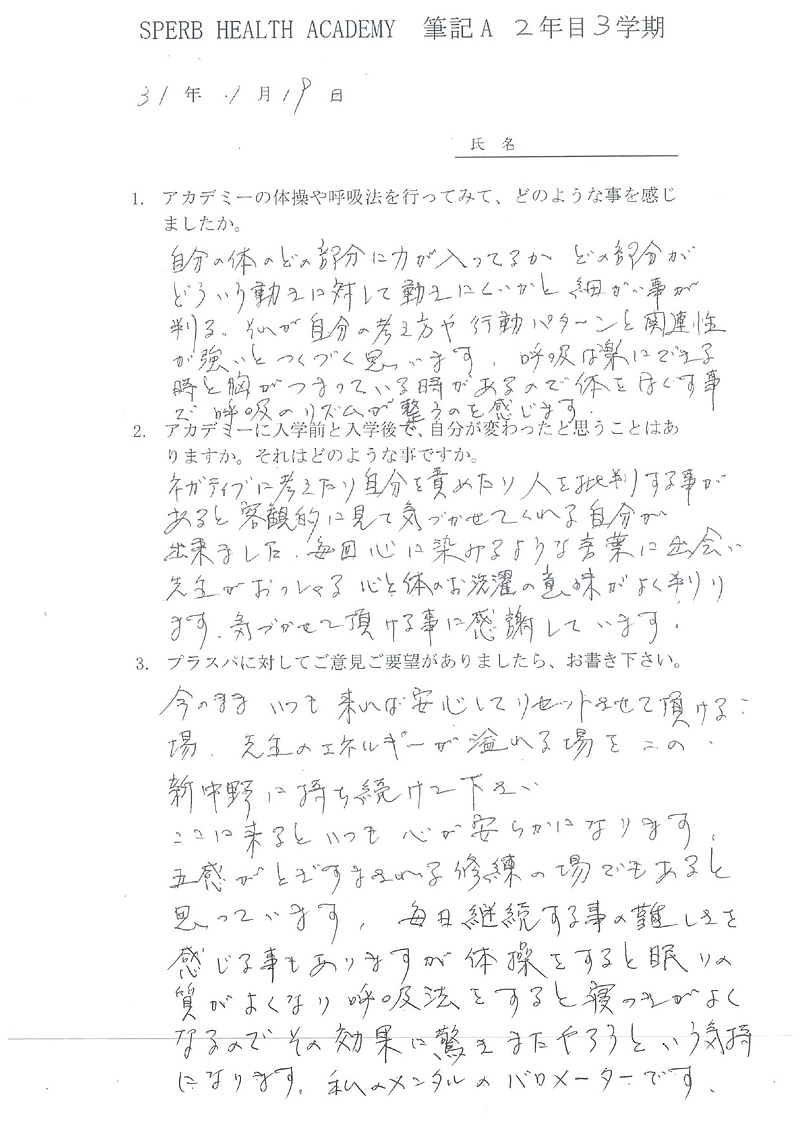 SPERB HEALTH ACADEMY 筆記A 2年目3学期
31年 1月19日
氏 名
1. アカデミーの体操や呼吸法を行ってみて、どのような事を感じ
ましたか。
自分の体のどの部分に力が入ってるか どの部分が
どういう動きに対して動きにくいかと細かい事が
判る。それが自分の考え方や行動パターンと関連性
が強いとつくづく思います。呼吸は楽にできる
時と胸がつまっている時があるので体をほぐす事
で呼吸のリズムが整うのを感じます.
2. アカデミーに入学前と入学後で、自分が変わったと思うことはあ
りますか。それはどのような事ですか。
ネガティブに考えたり自分を責めたり人を批判する事が
あると客観的に見て気づかせてくれる自分が
出来ました. 毎回心に染みるような言葉に出会い
先生がおっしゃる心と体のお洗濯の意味がよく判り
ます. 気づかせて頂ける事に感謝しています.
3. プラスパに対してご意見ご要望がありましたら、お書き下さい。
今のまま いつも来れば安心してリセットさせて頂ける
場. 先生のエネルギーが溢れる場をこの
新中野に持ち続けて下さい
ここに来るといつも心が安らかになります.
五感がとぎすまされる修練の場でもあると
思っています. 毎日継続する事の難しさを
感じる事もありますが体操をすると眠りの
質がよくなり呼吸法をすると寝つきがよく
なるのでその効果に驚きまたやろうという気持
になります. 私のメンタルのバロメーターです.